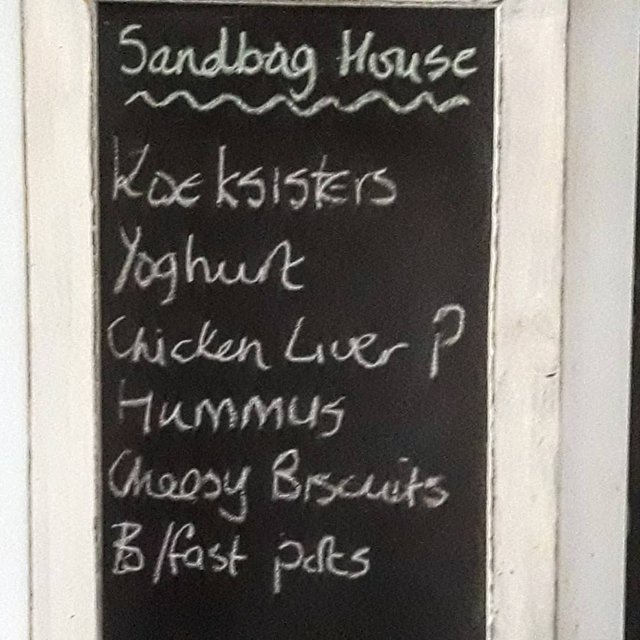 Sandbag House
Koeksisters
Yoghurt
Chicken Liver P
Hummus
Cheesy Biscuits
B/fast pots